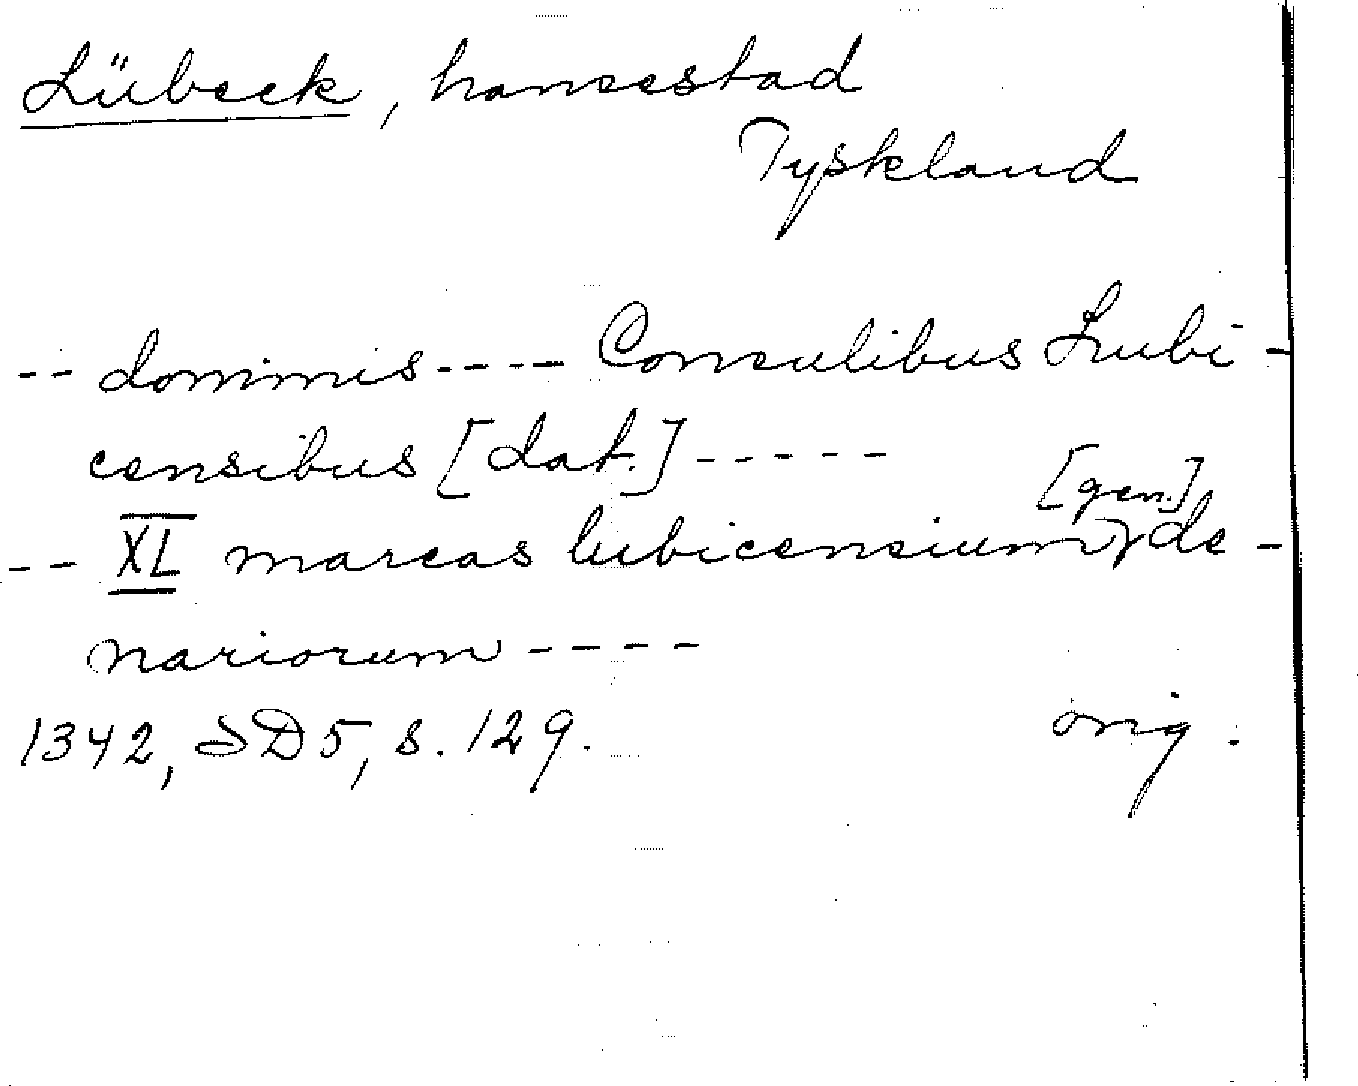 Lübeck, hansestad
Tyskland
-- dominis ---- Consulibus Lubi-
censibus [dat.] -----
[gen.]
-- XL marcas lubicensium de-
nariorum ----
1342, SD5, s. 129. orig.